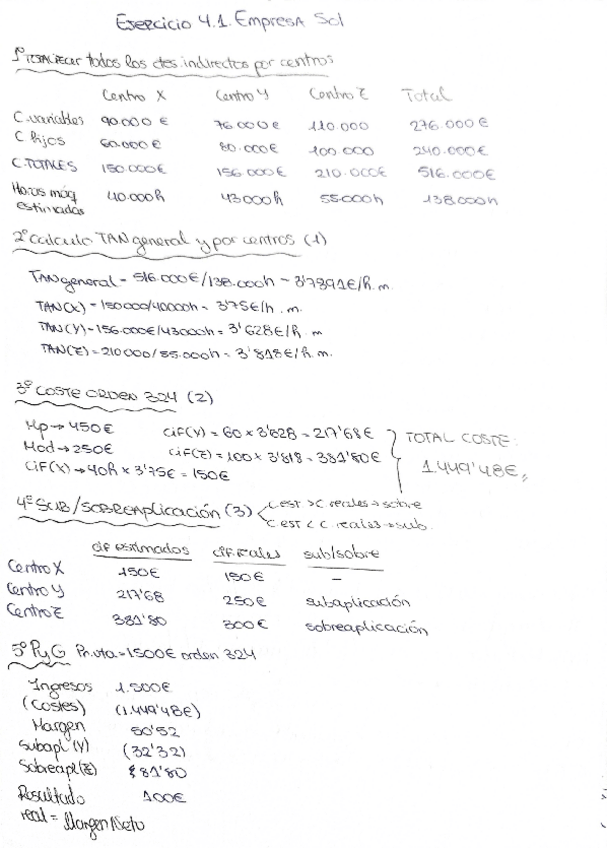 Ejercicio 4.1. Empresa Sol
todos los ctes indirectos por centros
Centro X Centro Y Centro Z Total
C. variables 90.000 € 76.000€ 110.000 276.000€
C fijos 60.000€ 80.000€ 100.000 240.000€
C. TOTALES 150.000€ 156.000€ 210.000€ 516.000€
Horas máq 40.000h 43000h 55000h 138.000h
estimadas
2º Calculo TAN general y por centros (1)
TAN general = 516.000€/138.000h = 3'7391€/h.m.
TAN(X) = 150000/40000h = 3'75€/h.m.
TAN(Y) = 156.000€/43000h = 3'628€/h.m.
TAN(Z) = 210000/55.000h = 3'818€/h.m.
3º COSTE ORDEN 324 (2)
Mp → 450€ CiF(Y) = 60 x 3'628 = 217'68€ TOTAL COSTE:
Mod → 250€ CiF(Z) = 100 x 3'818 = 381'80€
CiF(X) → 40h x 3'75€ = 150€ 1.449'48€
4º SUB/SOBREAPLICACIÓN (3) C est > C reales → sobre
C est < C reales → sub.
cif estimados cif reales sub/sobre
Centro X 150€ 150€ -
Centro Y 217'68 250€ subaplicación
Centro Z 381'80 300€ sobreaplicación
5º PyG Pr. vta = 1500€ orden 324
Ingresos 1.500€
(Costes) (1.449'48€)
Margen 50'52
Subapl (Y) (32'32)
Sobreapl (Z) 81'80
Resultado 100€
real = Margen Neto